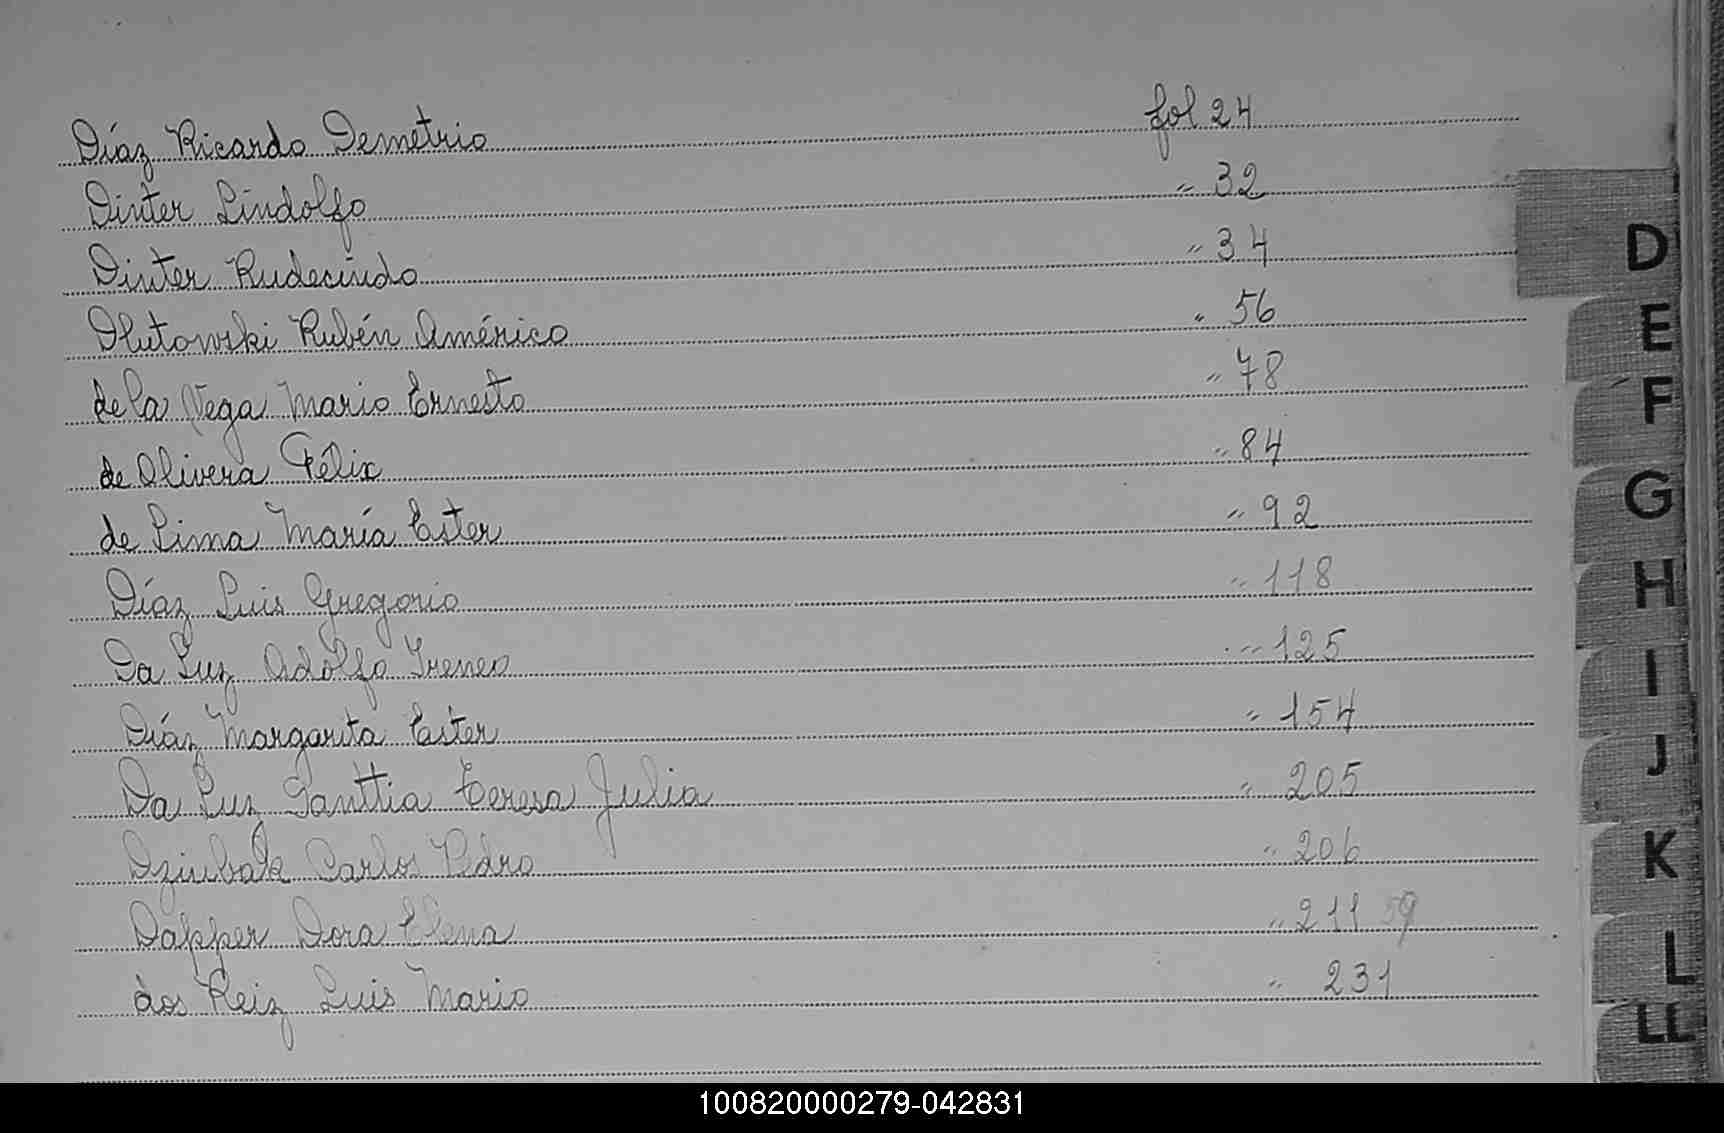 Díaz Ricardo Demetrio fol 24
Dinter Lindolfo " 32
Dinter Rudecindo " 34
Dlutowski Rubén Américo " 56
de la Vega Mario Ernesto " 78
de Olivera Félix " 84
de Lima María Ester " 92
Díaz Luis Gregorio " 118
Da Luz Adolfo Ireneo " 125
Díaz Margarita Ester " 154
Da Luz Teresa Julia " 205
Dziubak Carlos Pedro " 206
Dapper Dora Elena " 211 59
dos Reiz Luis Mario " 231
D
E
F
G
H
I
J
K
L
LL
100820000279-042831